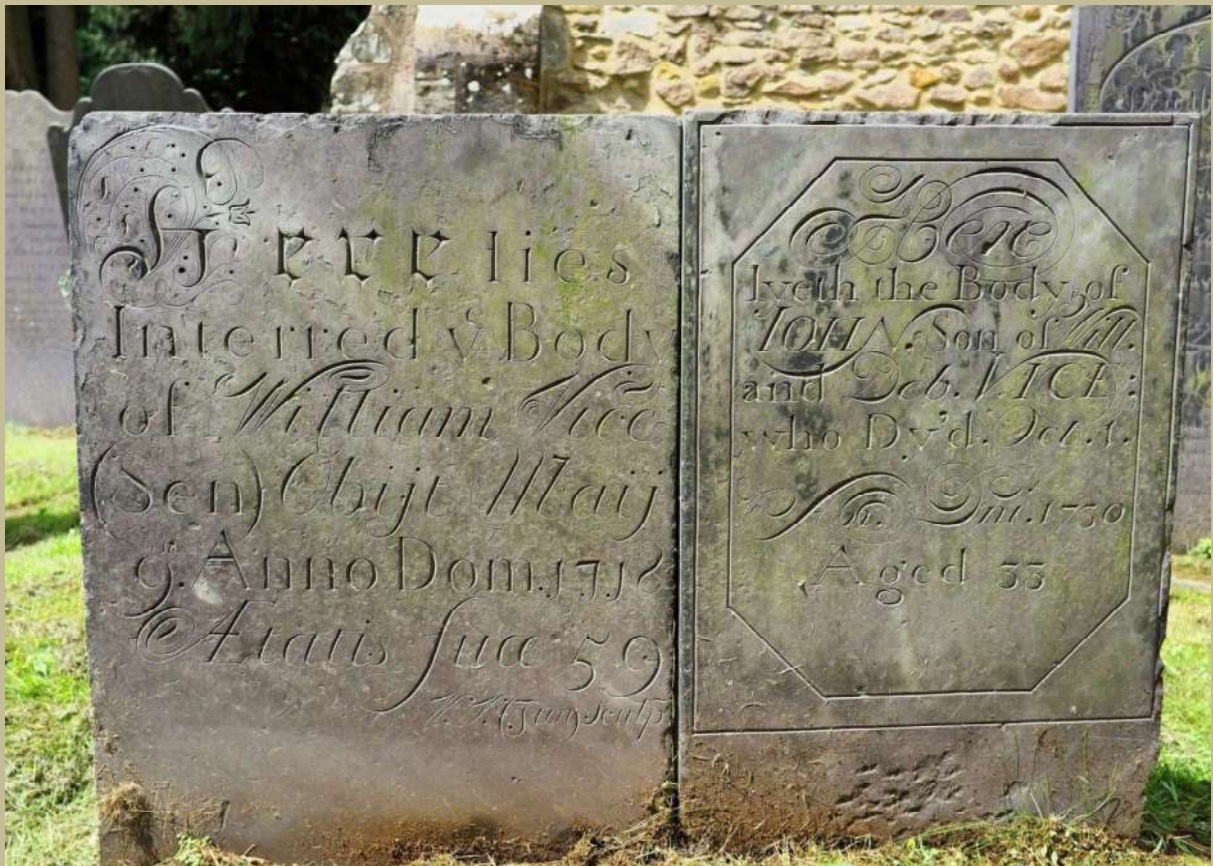 Here lies
Interred yͤ Body
of William Vice
(Sen) Obijt Maij
9.th Anno Dom. 1718
Ætatis suæ 59
W.V. (Jun) Sculp
Here
lyeth the Body of
IOHN. Son of Will.
and Deb. VICE;
who Dy'd. Oct. 1.
An. Dni. 1730
Aged 33